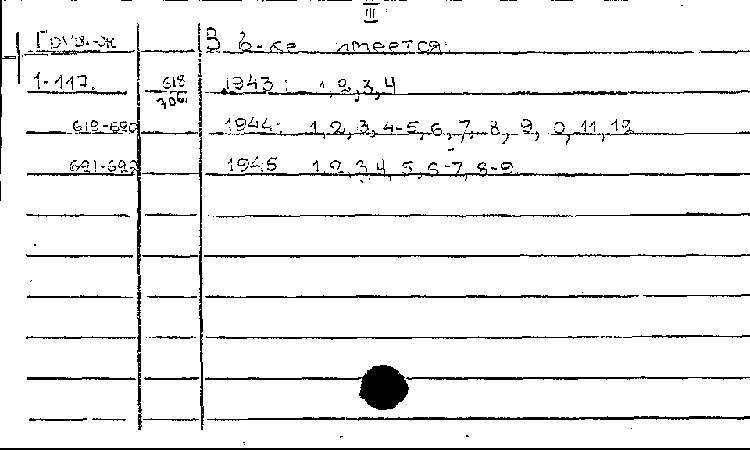 III
Груз.-ж В б-ке имеется:
1-117. 618 1943: 1,2,3,4
706
619-690 1944: 1,2,3,4-5,6,7,8,9,0,11,12
691-692 1945 1,2,3,4,5,6-7,8-9